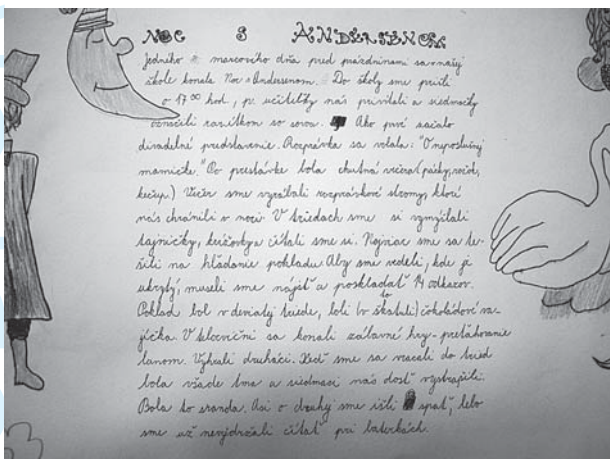 NOC S ANDERSENOM
Jedného marcového dňa pred prázdninami sa v našej
škole konala Noc s Andersenom. Do školy sme prišli
o 17 00 hod, p. učiteľky nás privítali a siedmačky
označili razítkom so sova. Ako prvé začalo
divadelné predstavenie. Rozprávka sa volala: "O neposlušnej
mamičke." Po prestávke bola chutná večera (párky, rožok,
kečup.) Večer sme vyrábali rozprávkové stromy, ktoré
nás chránili v noci. V triedach sme si vymýšľali
tajničky, krížovky a čítali sme si. Najviac sme sa te-
šili na hľadanie pokladu. Aby sme vedeli, kde je
ukrytý, museli sme nájsť a poskladať 14 odkazov.
Poklad bol v deviatej triede, boli to (v škatuli) čokoládové va-
jíčka. V telocvični sa konali zábavné hry - preťahovanie
lanom. Vyhrali druháci. Keď sme sa vracali do tried
bola všade tma a siedmaci nás dosť vystrašili.
Bola to sranda. Asi o druhej sme išli spať, lebo
sme už nevydržali čítať pri baterkách.